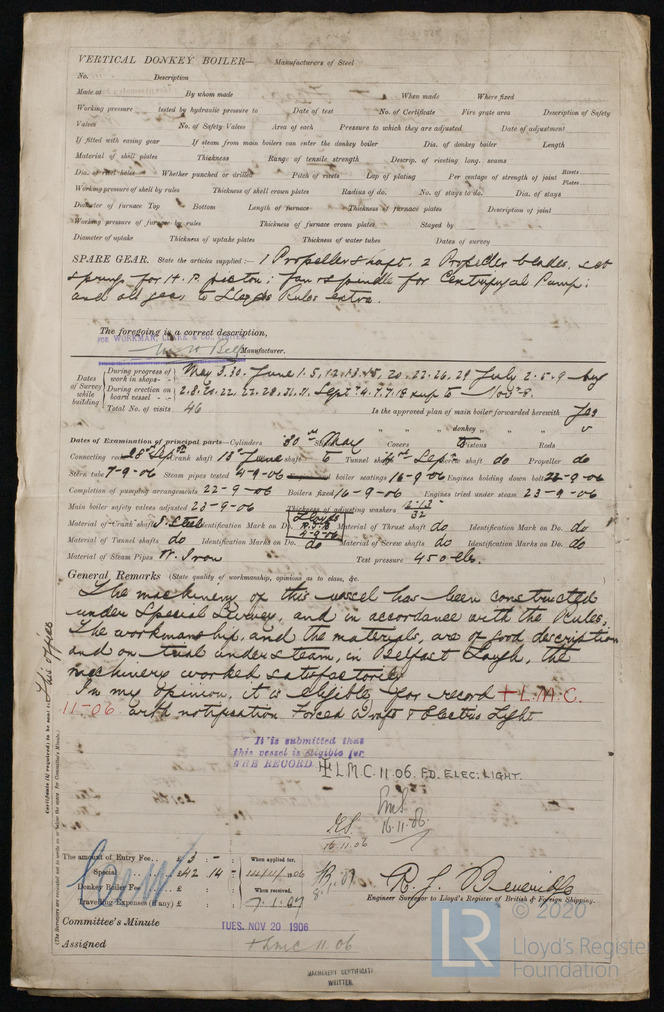 VERTICAL DONKEY BOILER— Manufacturers of Steel
No. Description
Made at By whom made When made Where fixed
Working pressure tested by hydraulic pressure to Date of test No. of Certificate Fire grate area Description of Safety
Valves No. of Safety Valves Area of each Pressure to which they are adjusted Date of adjustment
If fitted with easing gear If steam from main boilers can enter the donkey boiler Dia. of donkey boiler Length
Material of shell plates Thickness Range of tensile strength Descrip. of riveting long. seams
Dia. of rivet holes Whether punched or drilled Pitch of rivets Lap of plating Per centage of strength of joint Rivets Plates
Working pressure of shell by rules Thickness of shell crown plates Radius of do. No. of stays to do. Dia. of stays
Diameter of furnace Top Bottom Length of furnace Thickness of furnace plates Description of joint
Working pressure of furnace by rules Thickness of furnace crown plates Stayed by
Diameter of uptake Thickness of uptake plates Thickness of water tubes Dates of survey
SPARE GEAR. State the articles supplied:— 1 Propeller shaft, 2 Propeller blades, set
springs for H.P. piston; fan spindle for Centrifugal Pump;
and all gear to Lloyds Rules extra.
The foregoing is a correct description,
FOR WORKMAN, CLARK & CO., LIMITED
Bell Manufacturer.
Dates of Survey while building
During progress of work in shops - - May 3. 30. June 1. 5. 12. 13. 15, 20. 22. 26. 29 July 2. 5. 9 - Aug
During erection on board vessel - - - 2. 8. 20. 22. 27. 28. 31. Sept 4. 7. 18 to Nov 8.
Total No. of visits 46
Is the approved plan of main boiler forwarded herewith Yes
" " " donkey " " "
Dates of Examination of principal parts—Cylinders 30th May Covers to Pistons Rods
Connecting rods 28th Crank shaft 13th June shaft to Tunnel shafts 4th Sept Screw shaft do Propeller do
Stern tube 7-9-06 Steam pipes tested 4-9-06 boiler seatings 16-9-06 Engines holding down bolts 22-9-06
Completion of pumping arrangements 22-9-06 Boilers fixed 16-9-06 Engines tried under steam 23-9-06
Main boiler safety valves adjusted 23-9-06 Thickness of adjusting washers
Material of Crank shaft S. Steel Identification Mark on Do. Lloyds R.J.B 4-9-06 Material of Thrust shaft do Identification Mark on Do. do
Material of Tunnel shafts do Identification Marks on Do. do Material of Screw shafts do Identification Marks on Do. do
Material of Steam Pipes W. Iron Test pressure 450 lbs.
General Remarks (State quality of workmanship, opinions as to class, &c.
The machinery of this vessel has been constructed
under Special Survey, and in accordance with the Rules.
The workmanship, and the materials, are of good description
and on trial under steam, in Belfast Lough, the
machinery worked satisfactorily.
In my opinion, it is eligible for record + L.M.C.
11-06 with notification Forced Draft & Electric Light
It is submitted that
this vessel is eligible for
THE RECORD + L.M.C. 11.06. F.D. ELEC. LIGHT.
16.11.06.
16.11.06
The amount of Entry Fee. . . £ 3 : - :
Special . . . £ 42 : 14 : -
Donkey Boiler Fee . . . £ : :
Travelling Expenses (if any) £ : :
When applied for,
1906
When received,
7.1.07
R. J. Beveridge
Engineer Surveyor to Lloyd's Register of British & Foreign Shipping.
Committee's Minute TUES. NOV 20 1906
Assigned + L.M.C 11.06
MACHINERY CERTIFICATE
WRITTEN.
This office
Certificate (if required) to be sent to
(The Surveyors are requested not to write on or below the space for Committee's Minute.)
© 2020
LR
Lloyd's Register
Foundation